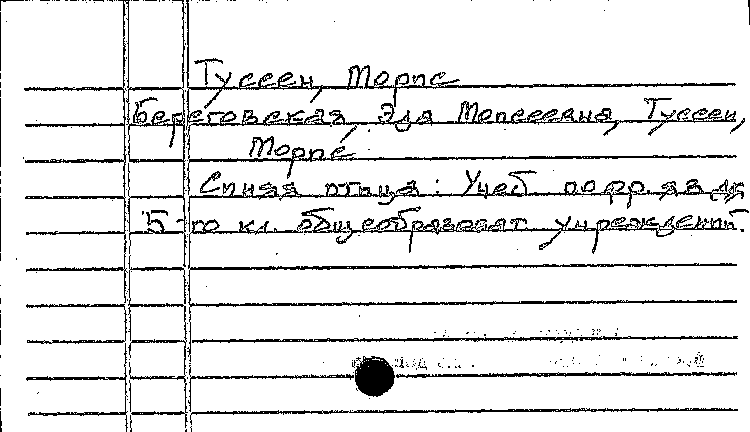 Туссен, Морис
Береговская, Эда Моисеевна, Туссен,
Морис
Синяя птица: Учеб. по фр. яз. дл
5-го кл. общеобразоват. учреждений.